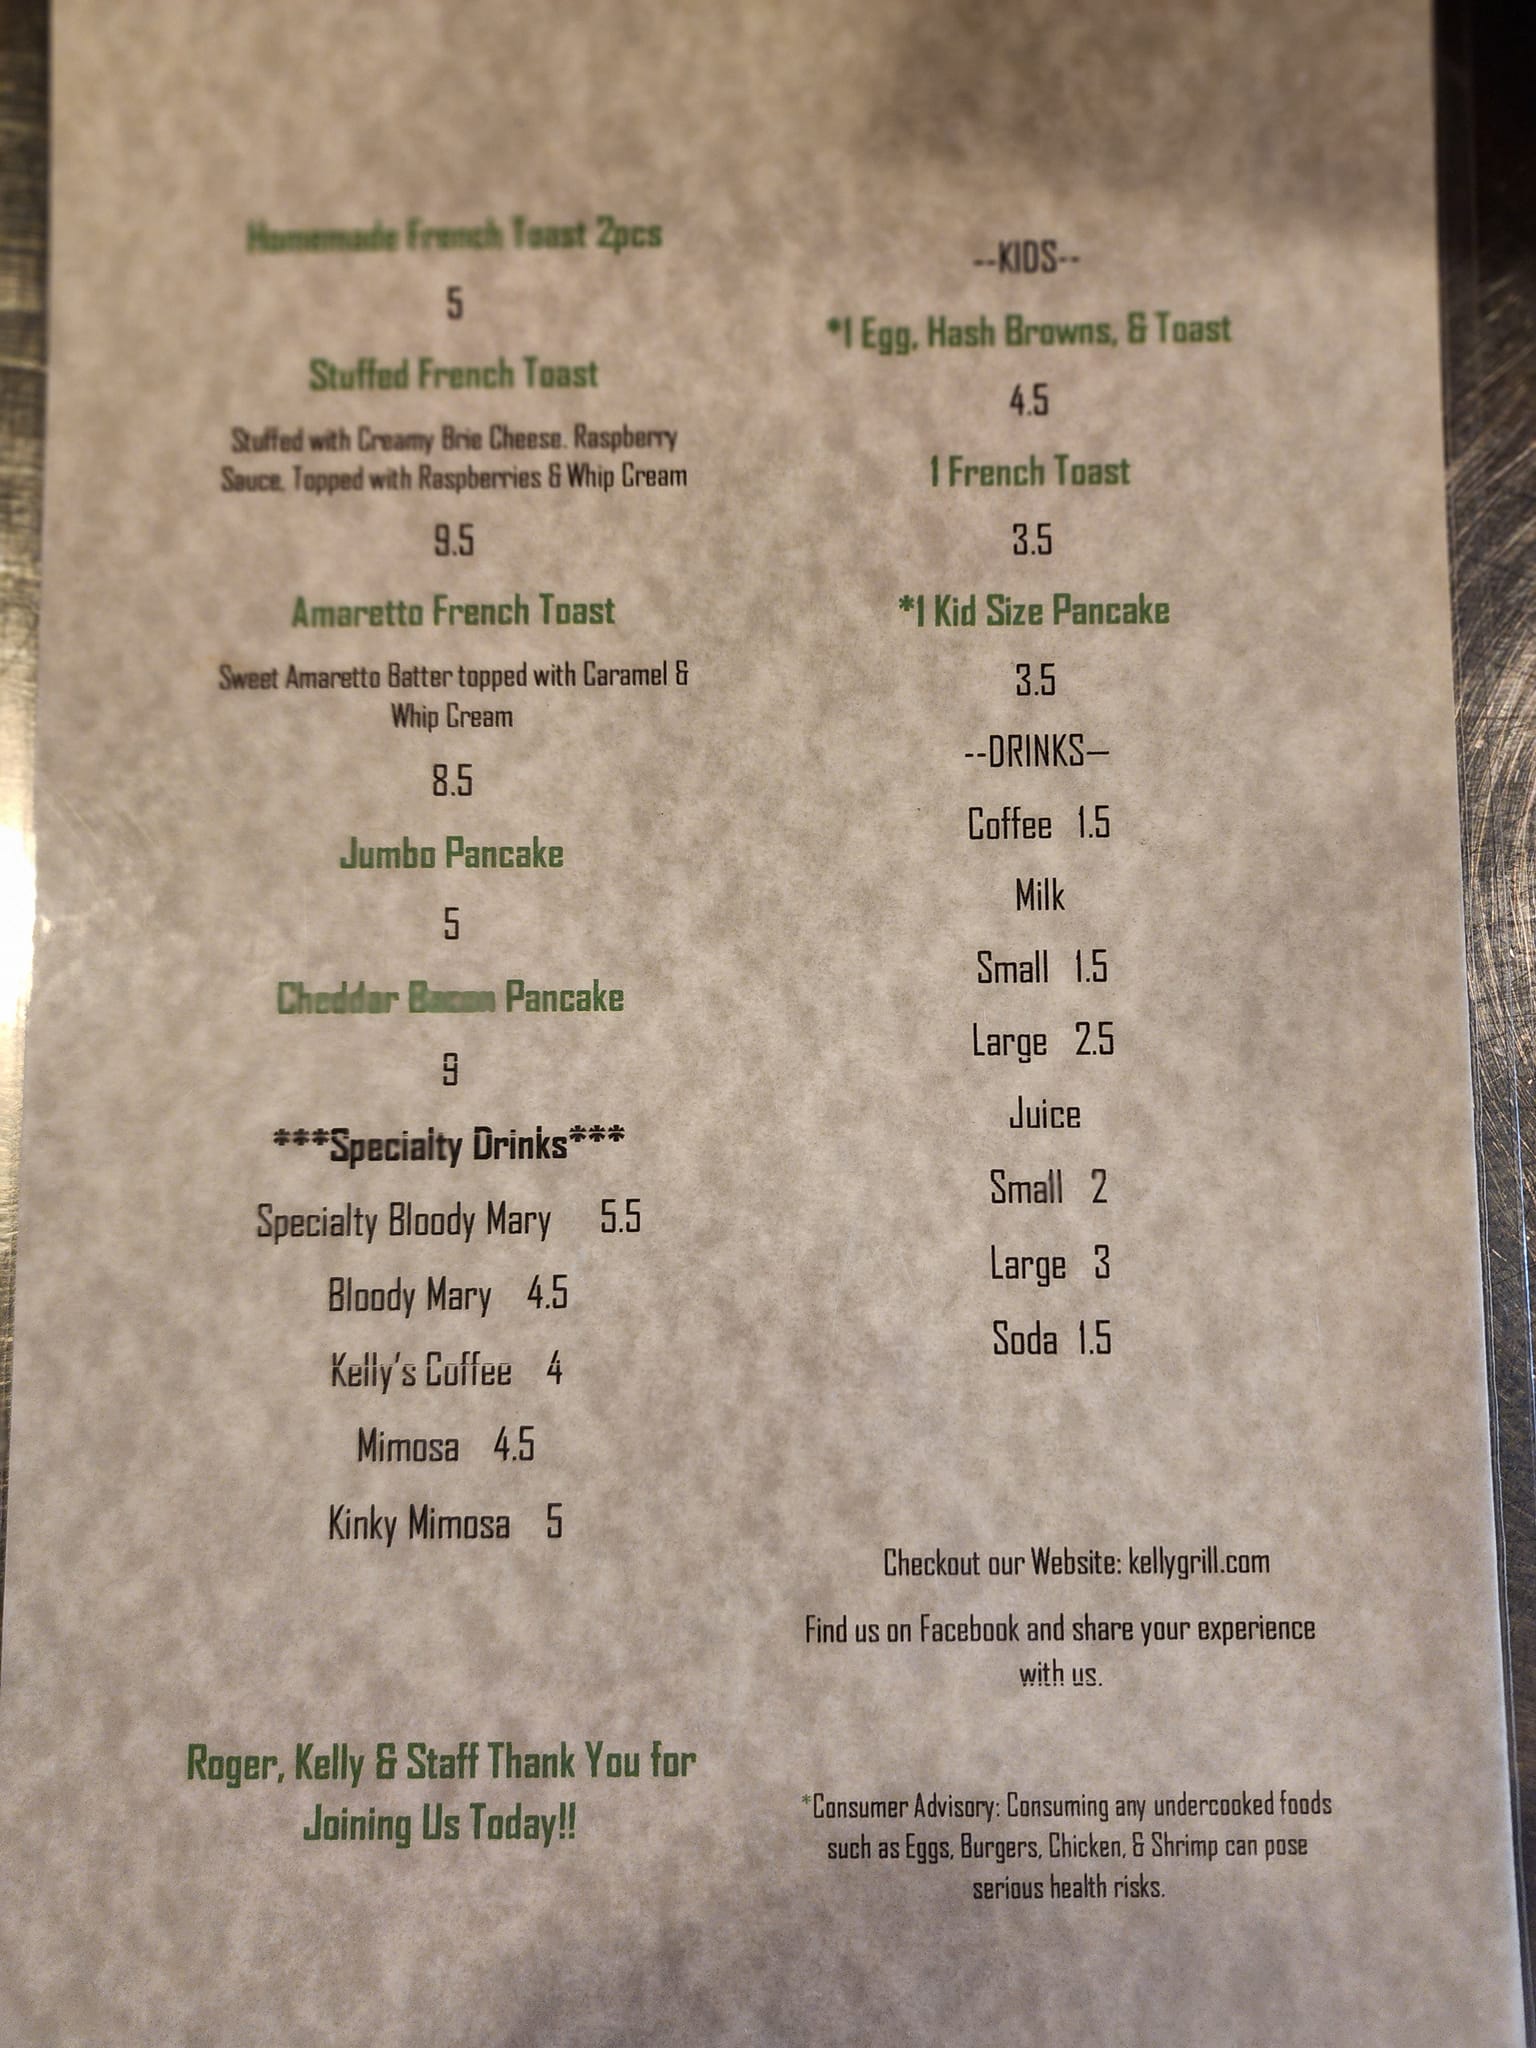 Homemade French Toast 2pcs
5
Stuffed French Toast
Stuffed with Creamy Brie Cheese. Raspberry
Sauce. Topped with Raspberries & Whip Cream
9.5
Amaretto French Toast
Sweet Amaretto Batter topped with Caramel &
Whip Cream
8.5
Jumbo Pancake
5
Cheddar Bacon Pancake
9
***Specialty Drinks***
Specialty Bloody Mary 5.5
Bloody Mary 4.5
Kelly's Coffee 4
Mimosa 4.5
Kinky Mimosa 5
Roger, Kelly & Staff Thank You for
Joining Us Today!!
--KIDS--
*1 Egg, Hash Browns, & Toast
4.5
1 French Toast
3.5
*1 Kid Size Pancake
3.5
--DRINKS—
Coffee 1.5
Milk
Small 1.5
Large 2.5
Juice
Small 2
Large 3
Soda 1.5
Checkout our Website: kellygrill.com
Find us on Facebook and share your experience
with us.
*Consumer Advisory: Consuming any undercooked foods
such as Eggs, Burgers, Chicken, & Shrimp can pose
serious health risks.